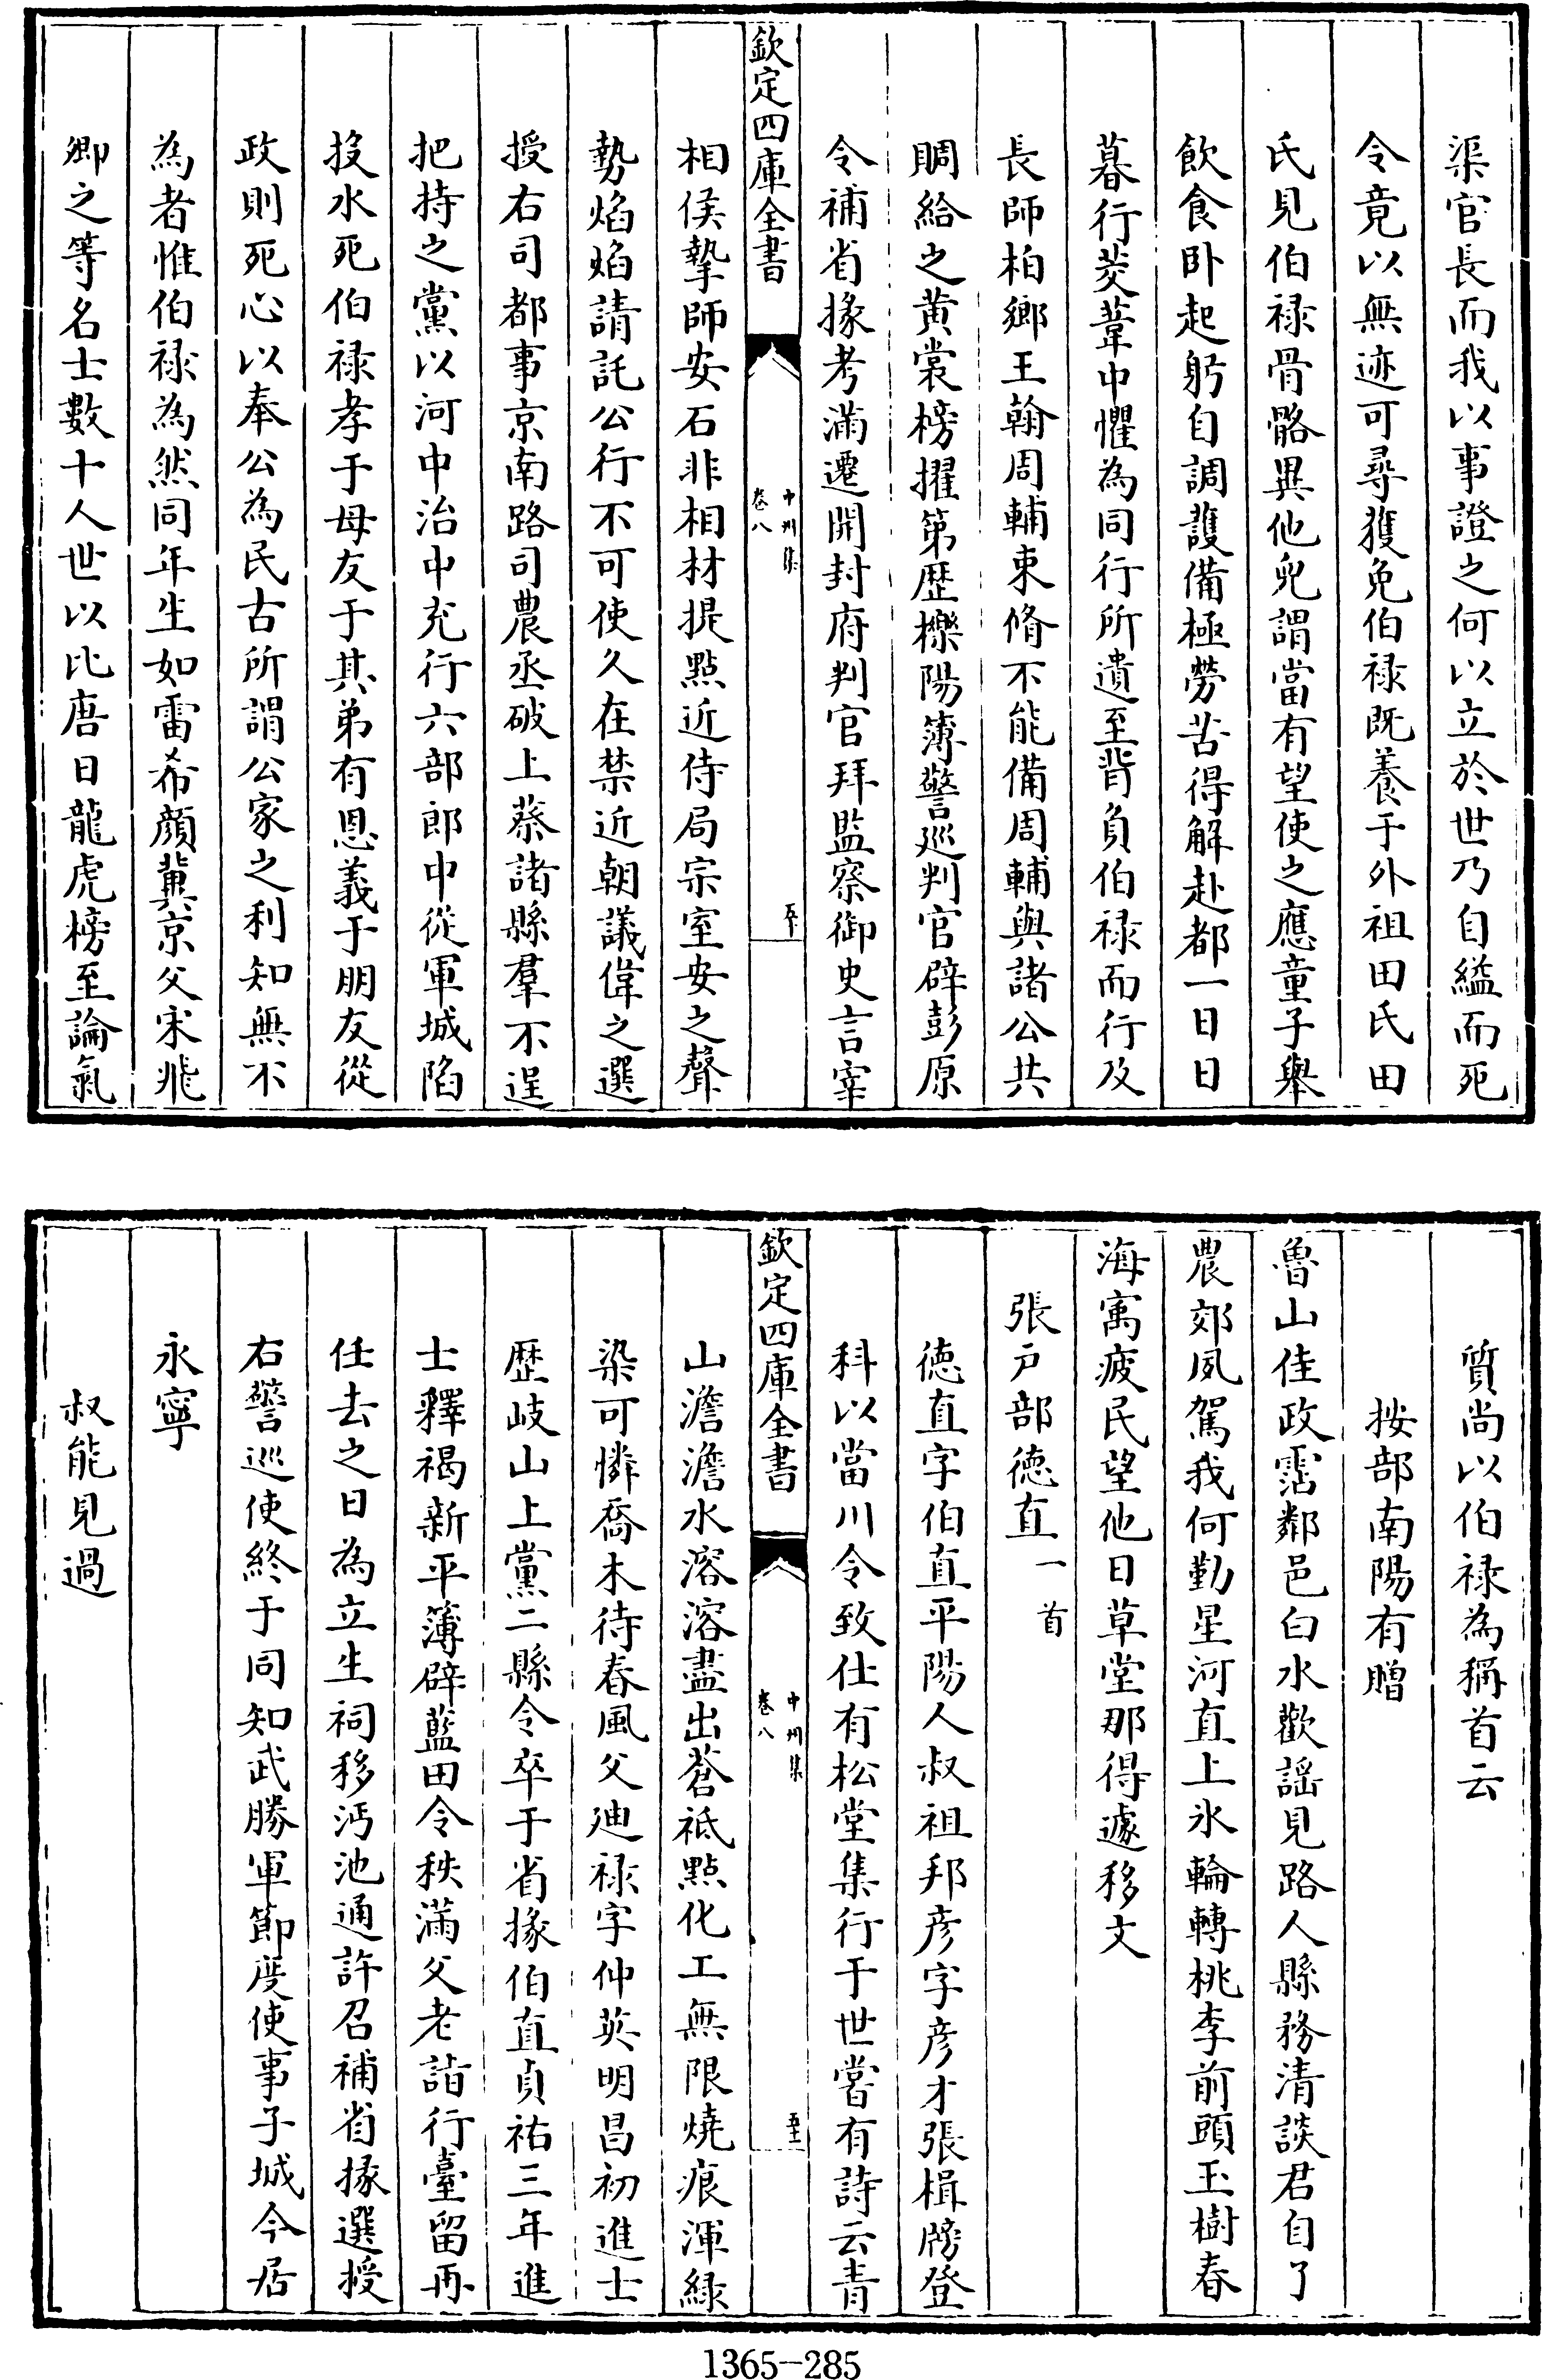 渠官長而我以事證之何以立於世乃自縊而死
令竟以無迹可尋獲免伯禄既養于外祖田氏田
氏見伯禄骨骼異他兒謂當有望使之應童子舉
飲食卧起躬自調護備極勞苦得解赴都一日日
暮行茭葦中懼為同行所遺至背負伯禄而行及
長師柏鄉王翰周輔束脩不能備周輔與諸公共
賙給之黄裳榜擢第歴櫟陽簿警廵判官辟彭原
令補省掾考滿遷開封府判官拜監察御史言宰
欽定四庫全書
中州集
卷八
五十
相侯摯師安石非相材提點近侍局宗室安之聲
勢焰焰請託公行不可使久在禁近朝議偉之選
授右司都事京南路司農丞破上蔡諸縣羣不逞
把持之黨以河中治中充行六部郎中從軍城陷
投水死伯禄孝于母友于其弟有恩義于朋友從
政則死心以奉公為民古所謂公家之利知無不
為者惟伯禄為然同年生如雷希顔冀京父宋飛
卿之等名士數十人世以比唐日龍虎榜至論氣
質尚以伯禄為稱首云
按部南陽有贈
魯山佳政霑鄰邑白水歡謡見路人縣務清談君自了
農郊夙駕我何勤星河直上氷輪轉桃李前頭玉樹春
海寓疲民望他日草堂那得遽移文
張戸部徳直一首
徳直字伯直平陽人叔祖邦彦字彦才張楫牓登
科以當川令致仕有松堂集行于世嘗有詩云青
欽定四庫全書
中州集
卷八
五十一
山澹澹水溶溶盡出蒼祇點化工無限燒痕渾緑
染可憐喬木待春風父廸禄字仲英明昌初進士
歴岐山上黨二縣令卒于省掾伯直貞祐三年進
士釋褐新平簿辟藍田令秩滿父老詣行臺留再
任去之日為立生祠移沔池通許召補省掾選授
右警巡使終于同知武勝軍節度使事子城今居
永寧
叔能見過
1365-285